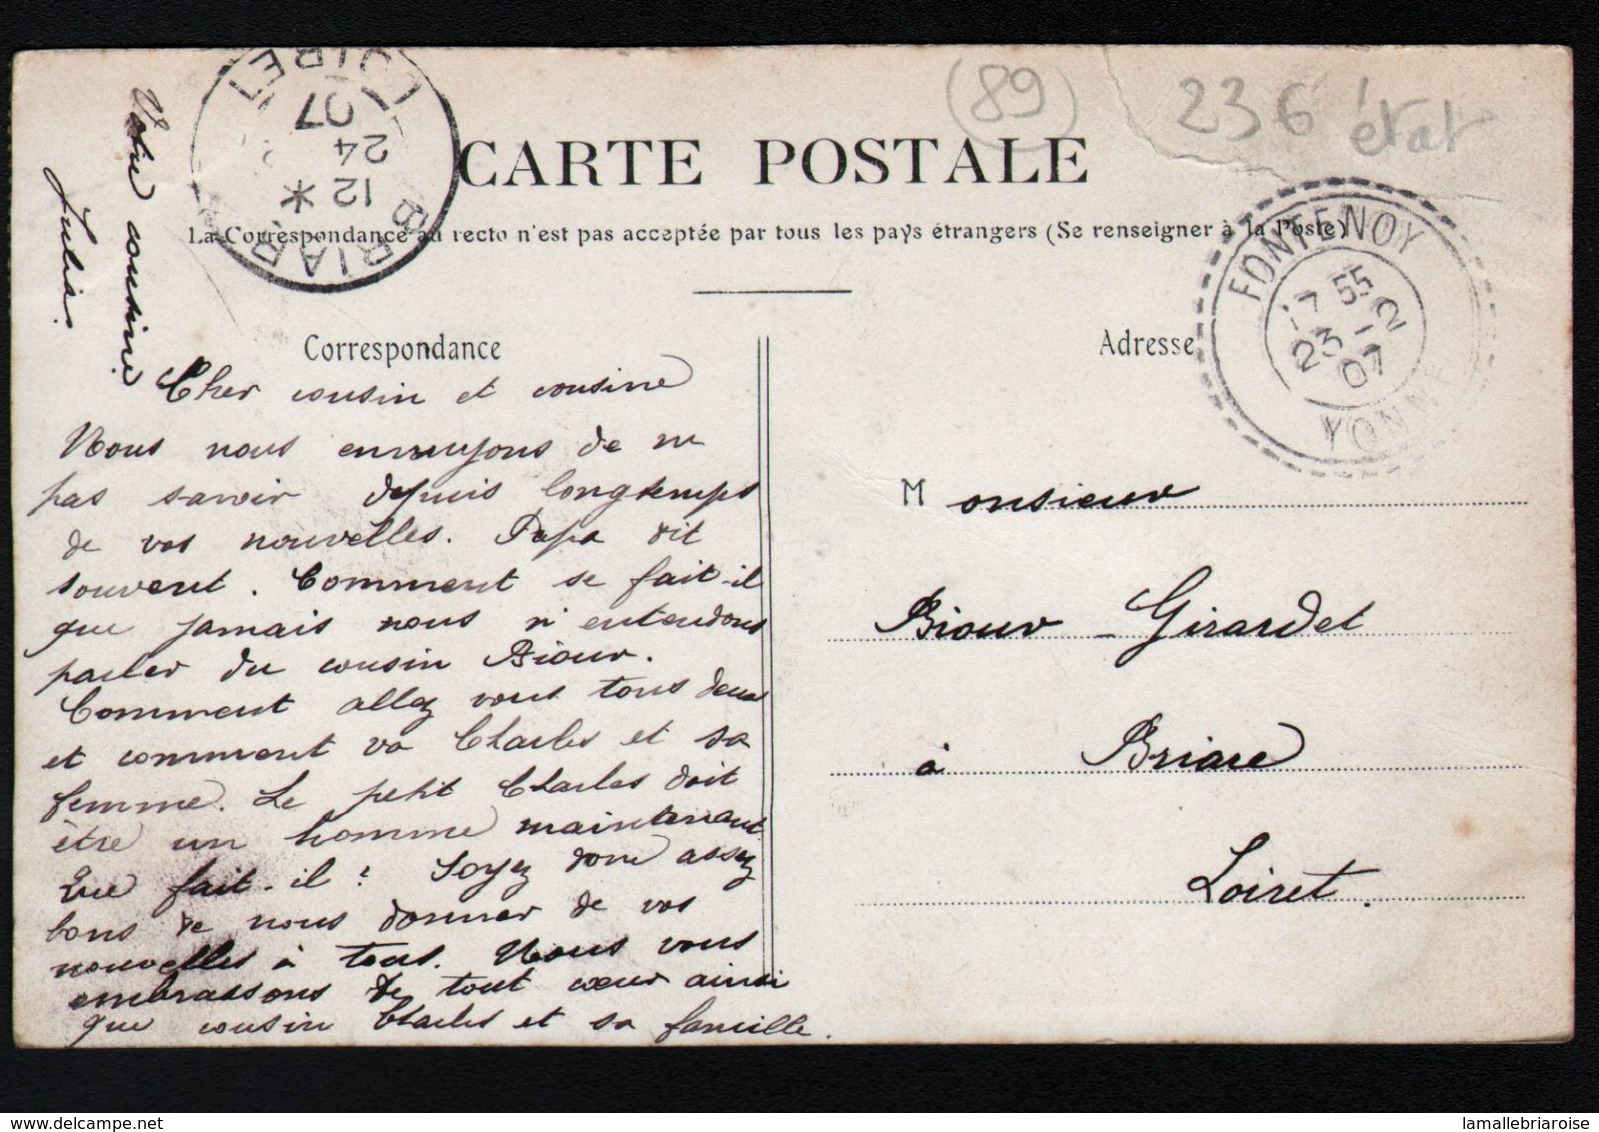 (89)
236 état
CARTE POSTALE
La Correspondance au recto n'est pas acceptée par tous les pays étrangers (Se renseigner à la Poste)
BRIARE
12 *
24
07
LOIRET
FONTENOY
17 55
23 - 2
07
YONNE
Correspondance
Cher cousin et cousine
Nous nous ennuyons de ne
pas savoir depuis longtemps
de vos nouvelles. Papa dit
souvent. Comment se fait-il
que jamais nous n'entendons
parler du cousin Biour.
Comment allez vous tous deux
et comment va Charles et sa
femme. Le petit Charles doit
être un homme maintenant
Que fait-il? Soyez donc assez
bons de nous donner de vos
nouvelles à tous. Nous vous
embrassons de tout cœur ainsi
que cousin Charles et sa famille.
Votre cousine
Julia.
Adresse
Monsieur
Biour - Girardet
à Briare
Loiret.
www.delcampe.net
lamallebriaroise